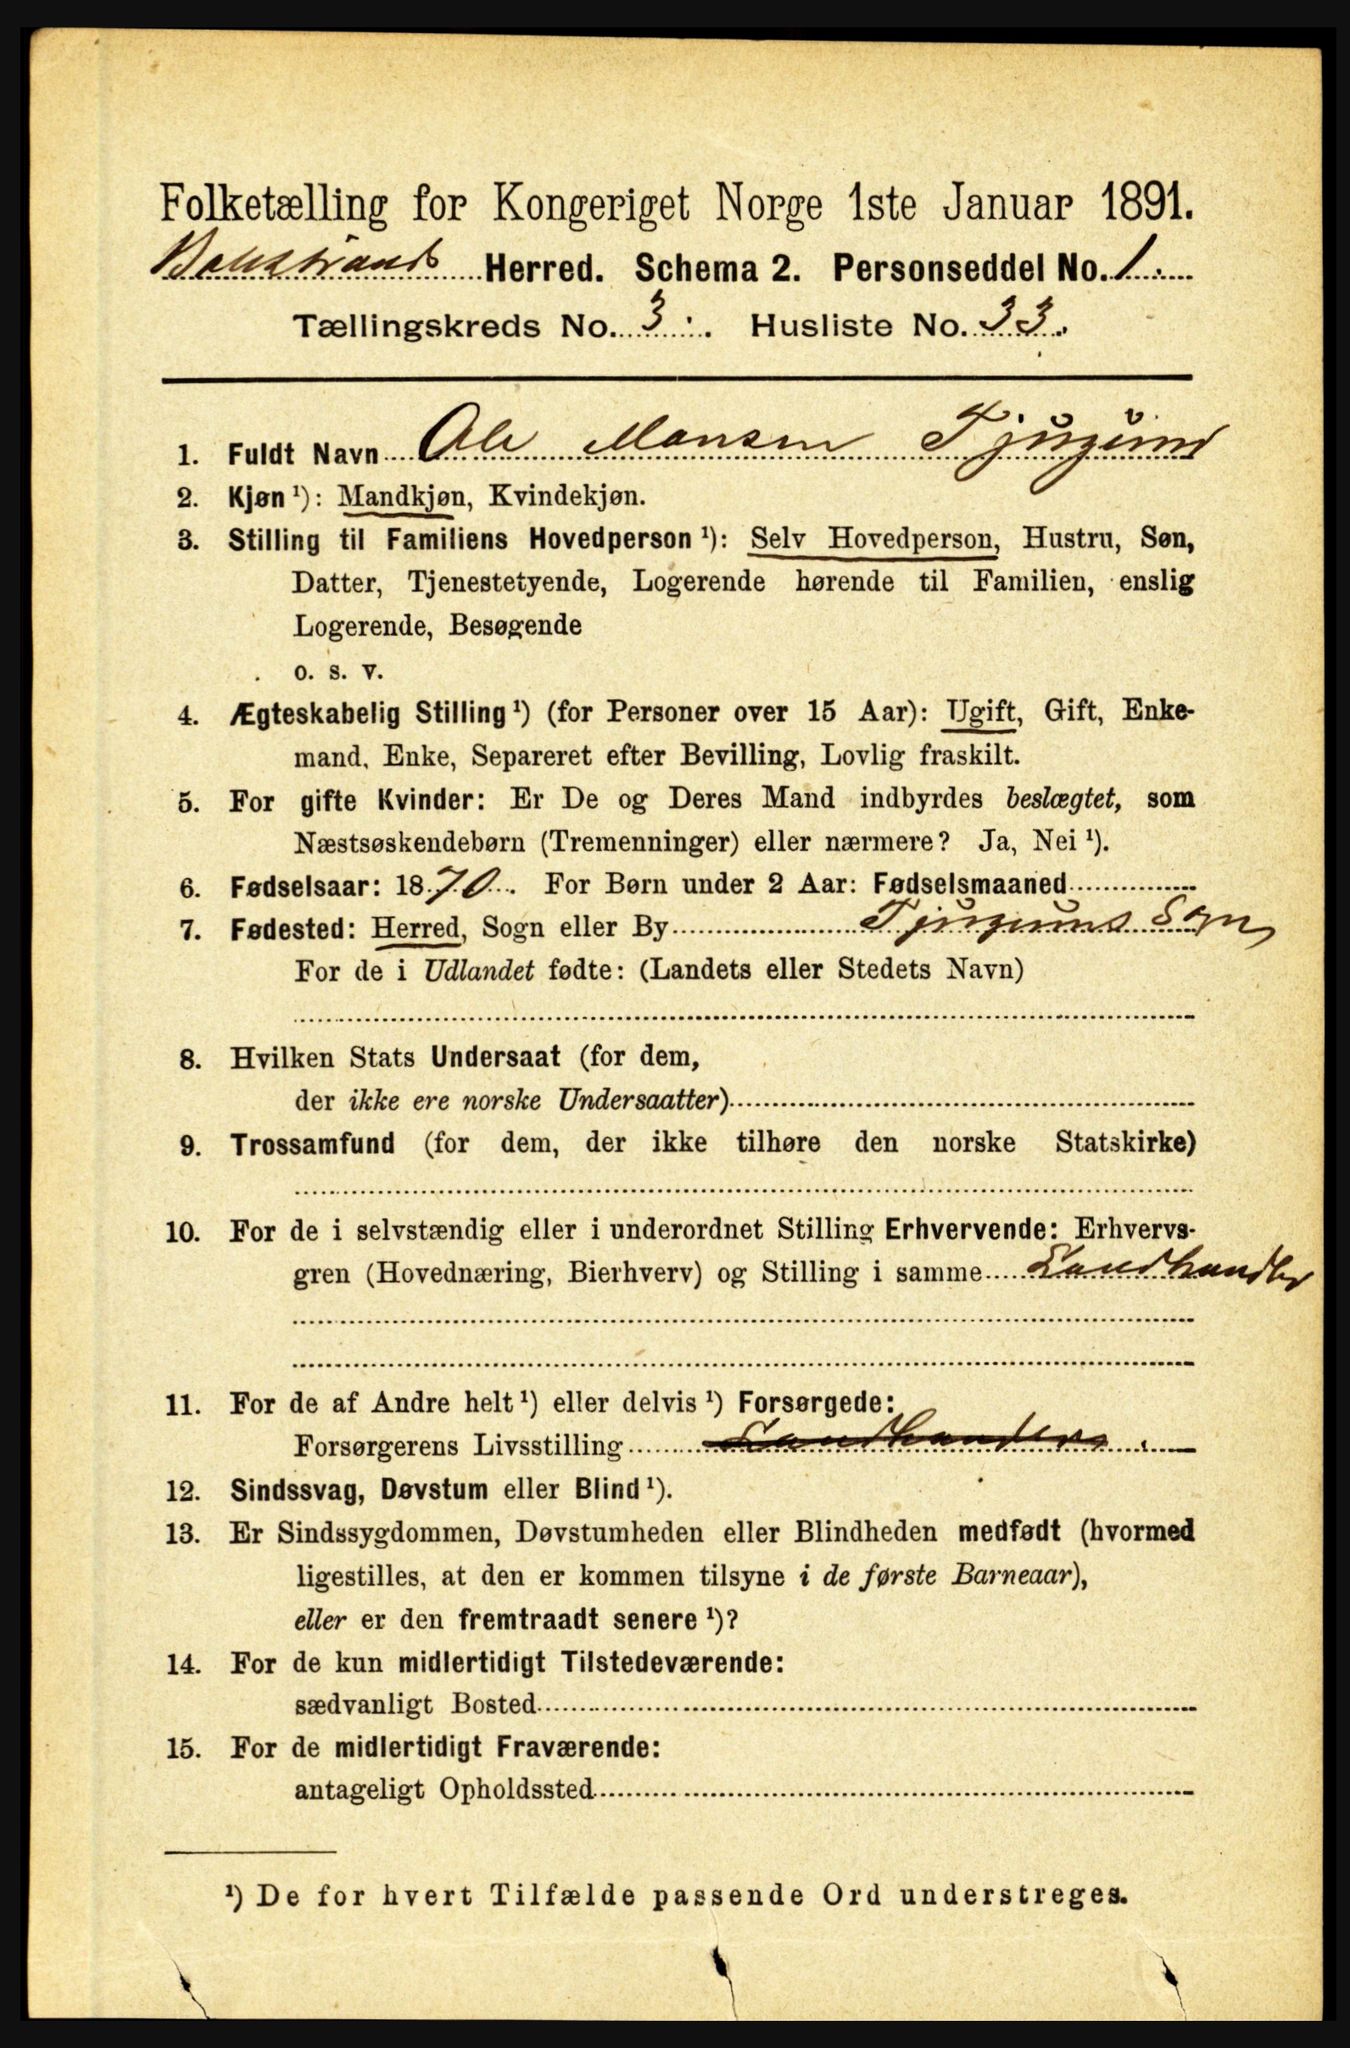 Folketælling for Kongeriget Norge 1ste Januar 1891.
Balestrand Herred. Schema 2. Personseddel No. 1.
Tællingskreds No. 3. Husliste No. 33.
1. Fuldt Navn Ole Monsen Tjugum
2. Kjøn ¹): Mandkjøn, Kvindekjøn.
3. Stilling til Familiens Hovedperson ¹): Selv Hovedperson, Hustru, Søn,
Datter, Tjenestetyende, Logerende hørende til Familien, enslig
Logerende, Besøgende
o. s. v.
4. Ægteskabelig Stilling ¹) (for Personer over 15 Aar): Ugift, Gift, Enke-
mand, Enke, Separeret efter Bevilling, Lovlig fraskilt.
5. For gifte Kvinder: Er De og Deres Mand indbyrdes beslægtet, som
Næstsøskendebørn (Tremenninger) eller nærmere? Ja, Nei ¹).
6. Fødselsaar: 1870. For Børn under 2 Aar: Fødselsmaaned
7. Fødested: Herred, Sogn eller By Tjugums Sogn
For de i Udlandet fødte: (Landets eller Stedets Navn)
8. Hvilken Stats Undersaat (for dem,
der ikke ere norske Undersaatter)
9. Trossamfund (for dem, der ikke tilhøre den norske Statskirke)
10. For de i selvstændig eller i underordnet Stilling Erhvervende: Erhvervs-
gren (Hovednæring, Bierhverv) og Stilling i samme Landhandler
11. For de af Andre helt ¹) eller delvis ¹) Forsørgede:
Forsørgerens Livsstilling Landhandler
12. Sindssvag, Døvstum eller Blind ¹).
13. Er Sindssygdommen, Døvstumheden eller Blindheden medfødt (hvormed
ligestilles, at den er kommen tilsyne i de første Barneaar),
eller er den fremtraadt senere ¹)?
14. For de kun midlertidigt Tilstedeværende:
sædvanligt Bosted
15. For de midlertidigt Fraværende:
antageligt Opholdssted
¹) De for hvert Tilfælde passende Ord understreges.